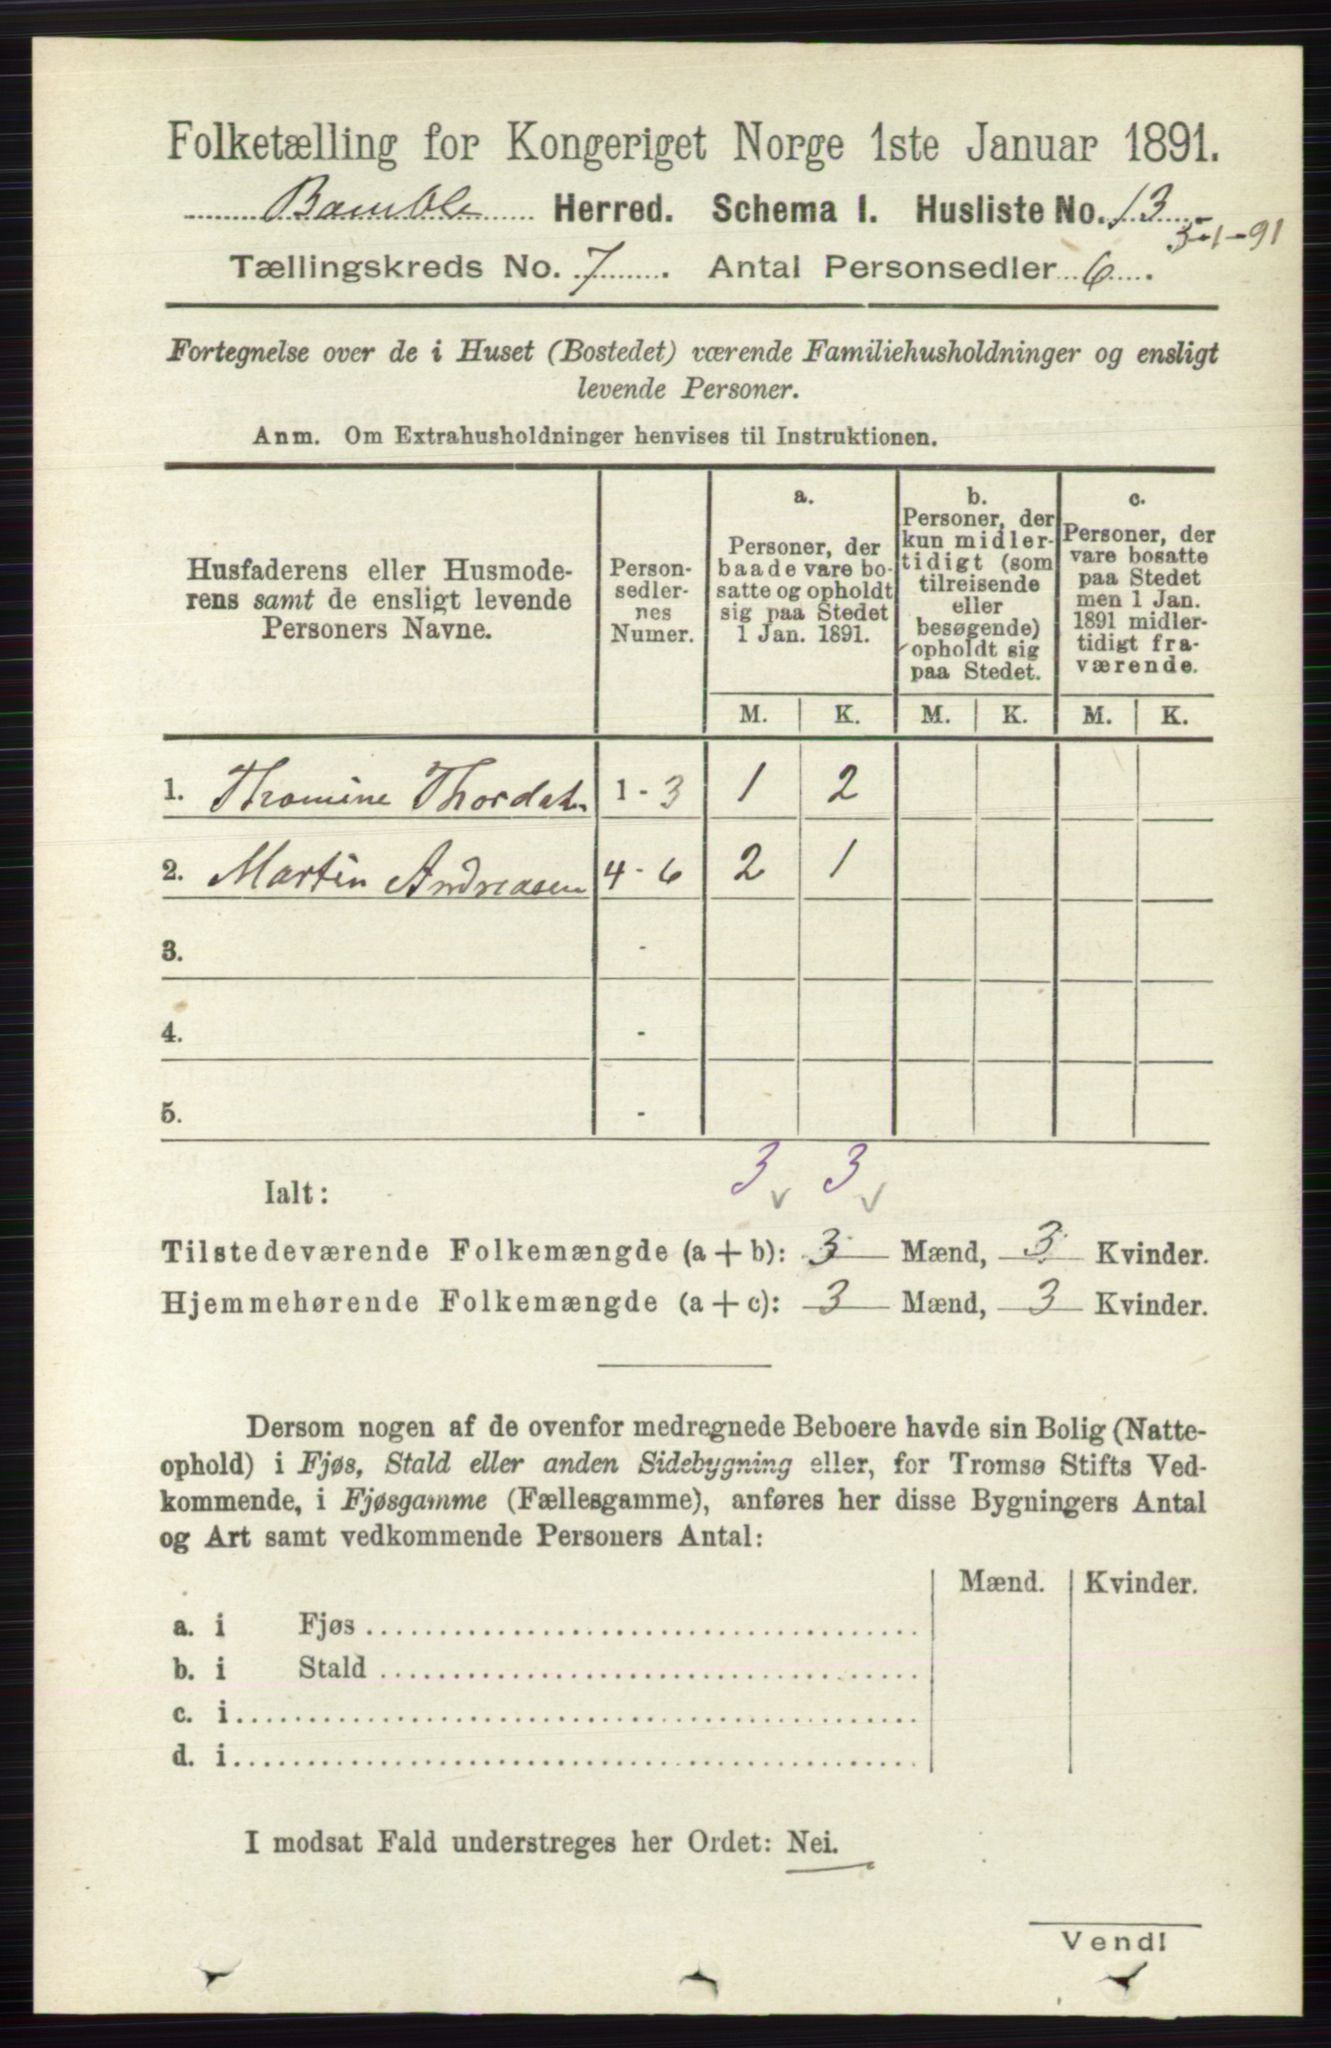 Folketælling for Kongeriget Norge 1ste Januar 1891.
Bamble Herred. Schema I. Husliste No. 13
3-1-91
Tællingskreds No. 7. Antal Personsedler 6.
Fortegnelse over de i Huset (Bostedet) værende Familiehusholdninger og ensligt
levende Personer.
Anm. Om Extrahusholdninger henvises til Instruktionen.
Husfaderens eller Husmode-
rens samt de ensligt levende
Personers Navne.
Person-
sedler-
nes
Numer.
a.
Personer, der
baade vare bo-
satte og opholdt
sig paa Stedet
1 Jan. 1891.
b.
Personer, der
kun midler-
tidigt (som
tilreisende
eller
besøgende)
opholdt sig
paa Stedet.
c.
Personer, der
vare bosatte
paa Stedet
men 1 Jan.
1891 midler-
tidigt fra-
værende.
M. K. M. K. M. K.
1. Thomine 1 - 3 1 2
2. Martin Andreasen 4 - 6 2 1
3. -
4. -
5. -
3 3
Ialt:
Tilstedeværende Folkemængde (a + b): 3 Mænd, 3 Kvinder.
Hjemmehørende Folkemængde (a + c): 3 Mænd, 3 Kvinder.
Dersom nogen af de ovenfor medregnede Beboere havde sin Bolig (Natte-
ophold) i Fjøs, Stald eller anden Sidebygning eller, for Tromsø Stifts Ved-
kommende, i Fjøsgamme (Fællesgamme), anføres her disse Bygningers Antal
og Art samt vedkommende Personers Antal:
Mænd. Kvinder.
a. i Fjøs
b. i Stald
c. i
d. i
I modsat Fald understreges her Ordet: Nei.
Vend!